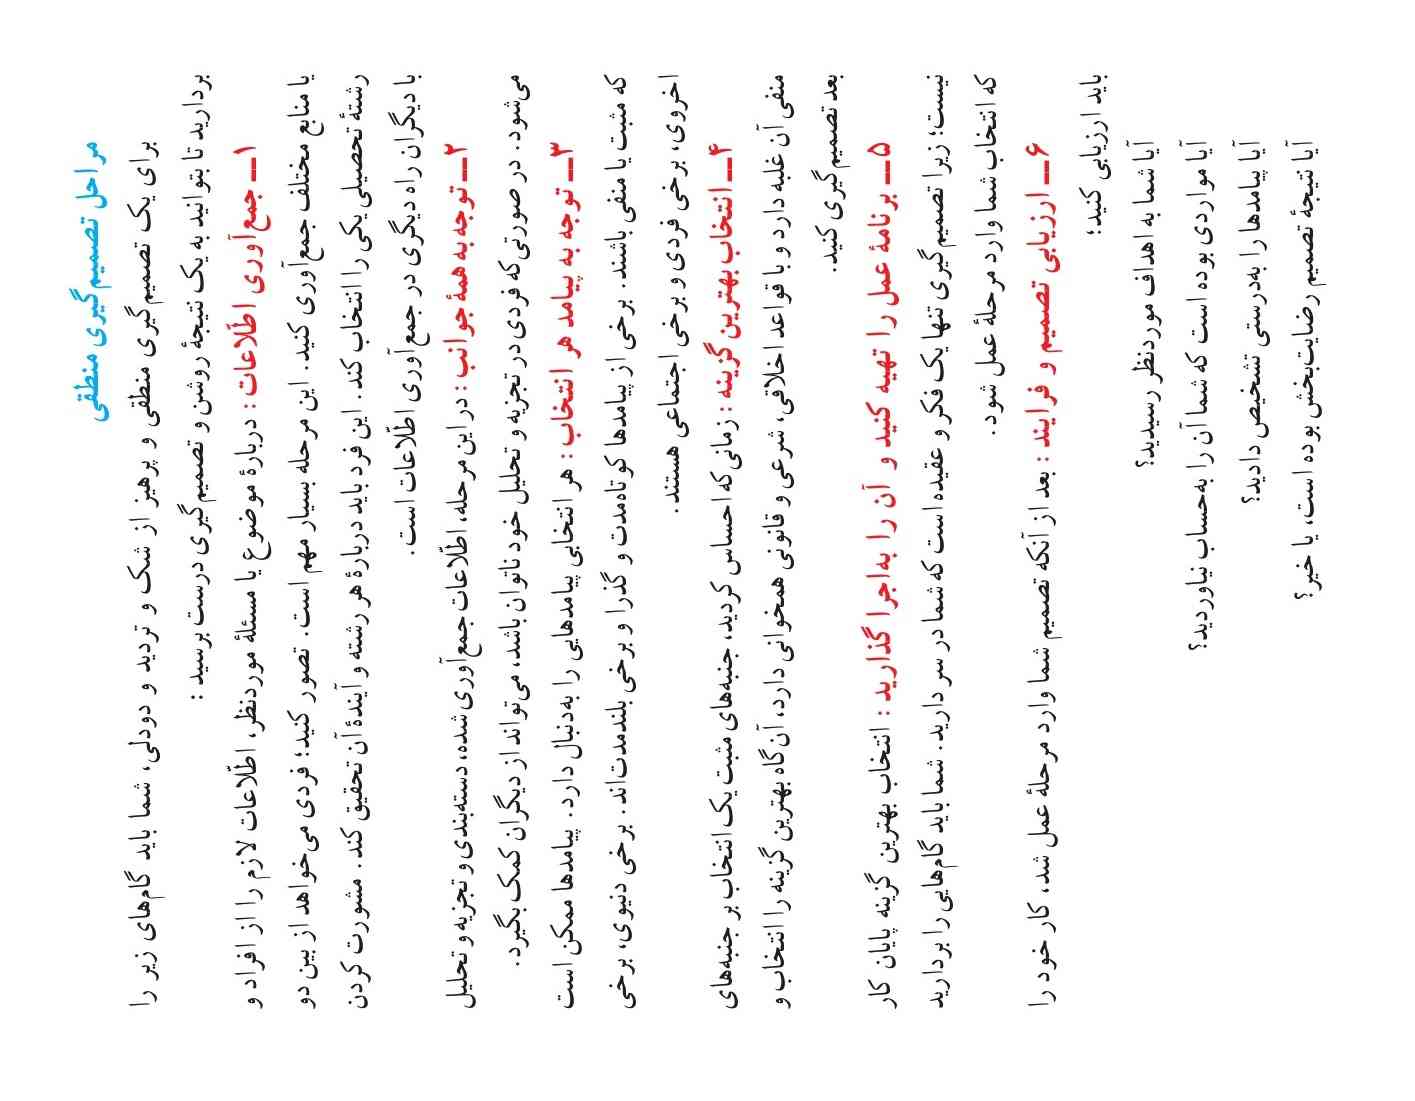 مراحل تصمیم‌گیری منطقی
برای یک تصمیم‌گیری منطقی و پرهیز از شک و تردید و دودلی، شما باید گام‌های زیر را
بردارید تا بتوانید به یک نتیجهٔ روشن و تصمیم‌گیری درست برسید :
۱ــ جمع‌آوری اطّلاعات : دربارهٔ موضوع یا مسئلهٔ موردنظر، اطّلاعات لازم را از افراد و
یا منابع مختلف جمع‌آوری کنید. این مرحله بسیار مهم است. تصور کنید؛ فردی می‌خواهد از بین دو
رشتهٔ تحصیلی یکی را انتخاب کند. این فرد باید دربارهٔ هر رشته و آیندهٔ آن تحقیق کند. مشورت کردن
با دیگران راه دیگری در جمع‌آوری اطّلاعات است.
۲ــ توجه به همهٔ جوانب : در این مرحله، اطّلاعات جمع‌آوری شده، دسته‌بندی و تجزیه و تحلیل
می‌شود. در صورتی‌که فردی در تجزیه و تحلیل خود ناتوان باشد، می‌تواند از دیگران کمک بگیرد.
۳ــ توجه به پیامد هر انتخاب : هر انتخابی پیامدهایی را به‌دنبال دارد. پیامدها ممکن است
که مثبت یا منفی باشند. برخی از پیامدها کوتاه‌مدت و گذرا و برخی بلندمدت‌اند. برخی دنیوی، برخی
اخروی، برخی فردی و برخی اجتماعی هستند.
۴ــ انتخاب بهترین گزینه : زمانی‌که احساس کردید، جنبه‌های مثبت یک انتخاب بر جنبه‌های
منفی آن غلبه دارد و با قواعد اخلاقی، شرعی و قانونی همخوانی دارد، آن‌گاه بهترین گزینه را انتخاب و
بعد تصمیم‌گیری کنید.
۵ــ برنامهٔ عمل را تهیه کنید و آن را به‌اجرا گذارید : انتخاب بهترین گزینه پایان کار
نیست؛ زیرا تصمیم‌گیری تنها یک فکر و عقیده است که شما در سر دارید. شما باید گام‌هایی را بردارید
که انتخاب شما وارد مرحلهٔ عمل شود.
۶ــ ارزیابی تصمیم و فرایند : بعد از آنکه تصمیم شما وارد مرحلهٔ عمل شد، کار خود را
باید ارزیابی کنید؛
آیا شما به اهداف موردنظر رسیدید؟
آیا مواردی بوده است که شما آن را به‌حساب نیاوردید؟
آیا پیامدها را به‌درستی تشخیص دادید؟
آیا نتیجهٔ تصمیم رضایت‌بخش بوده است، یا خیر؟